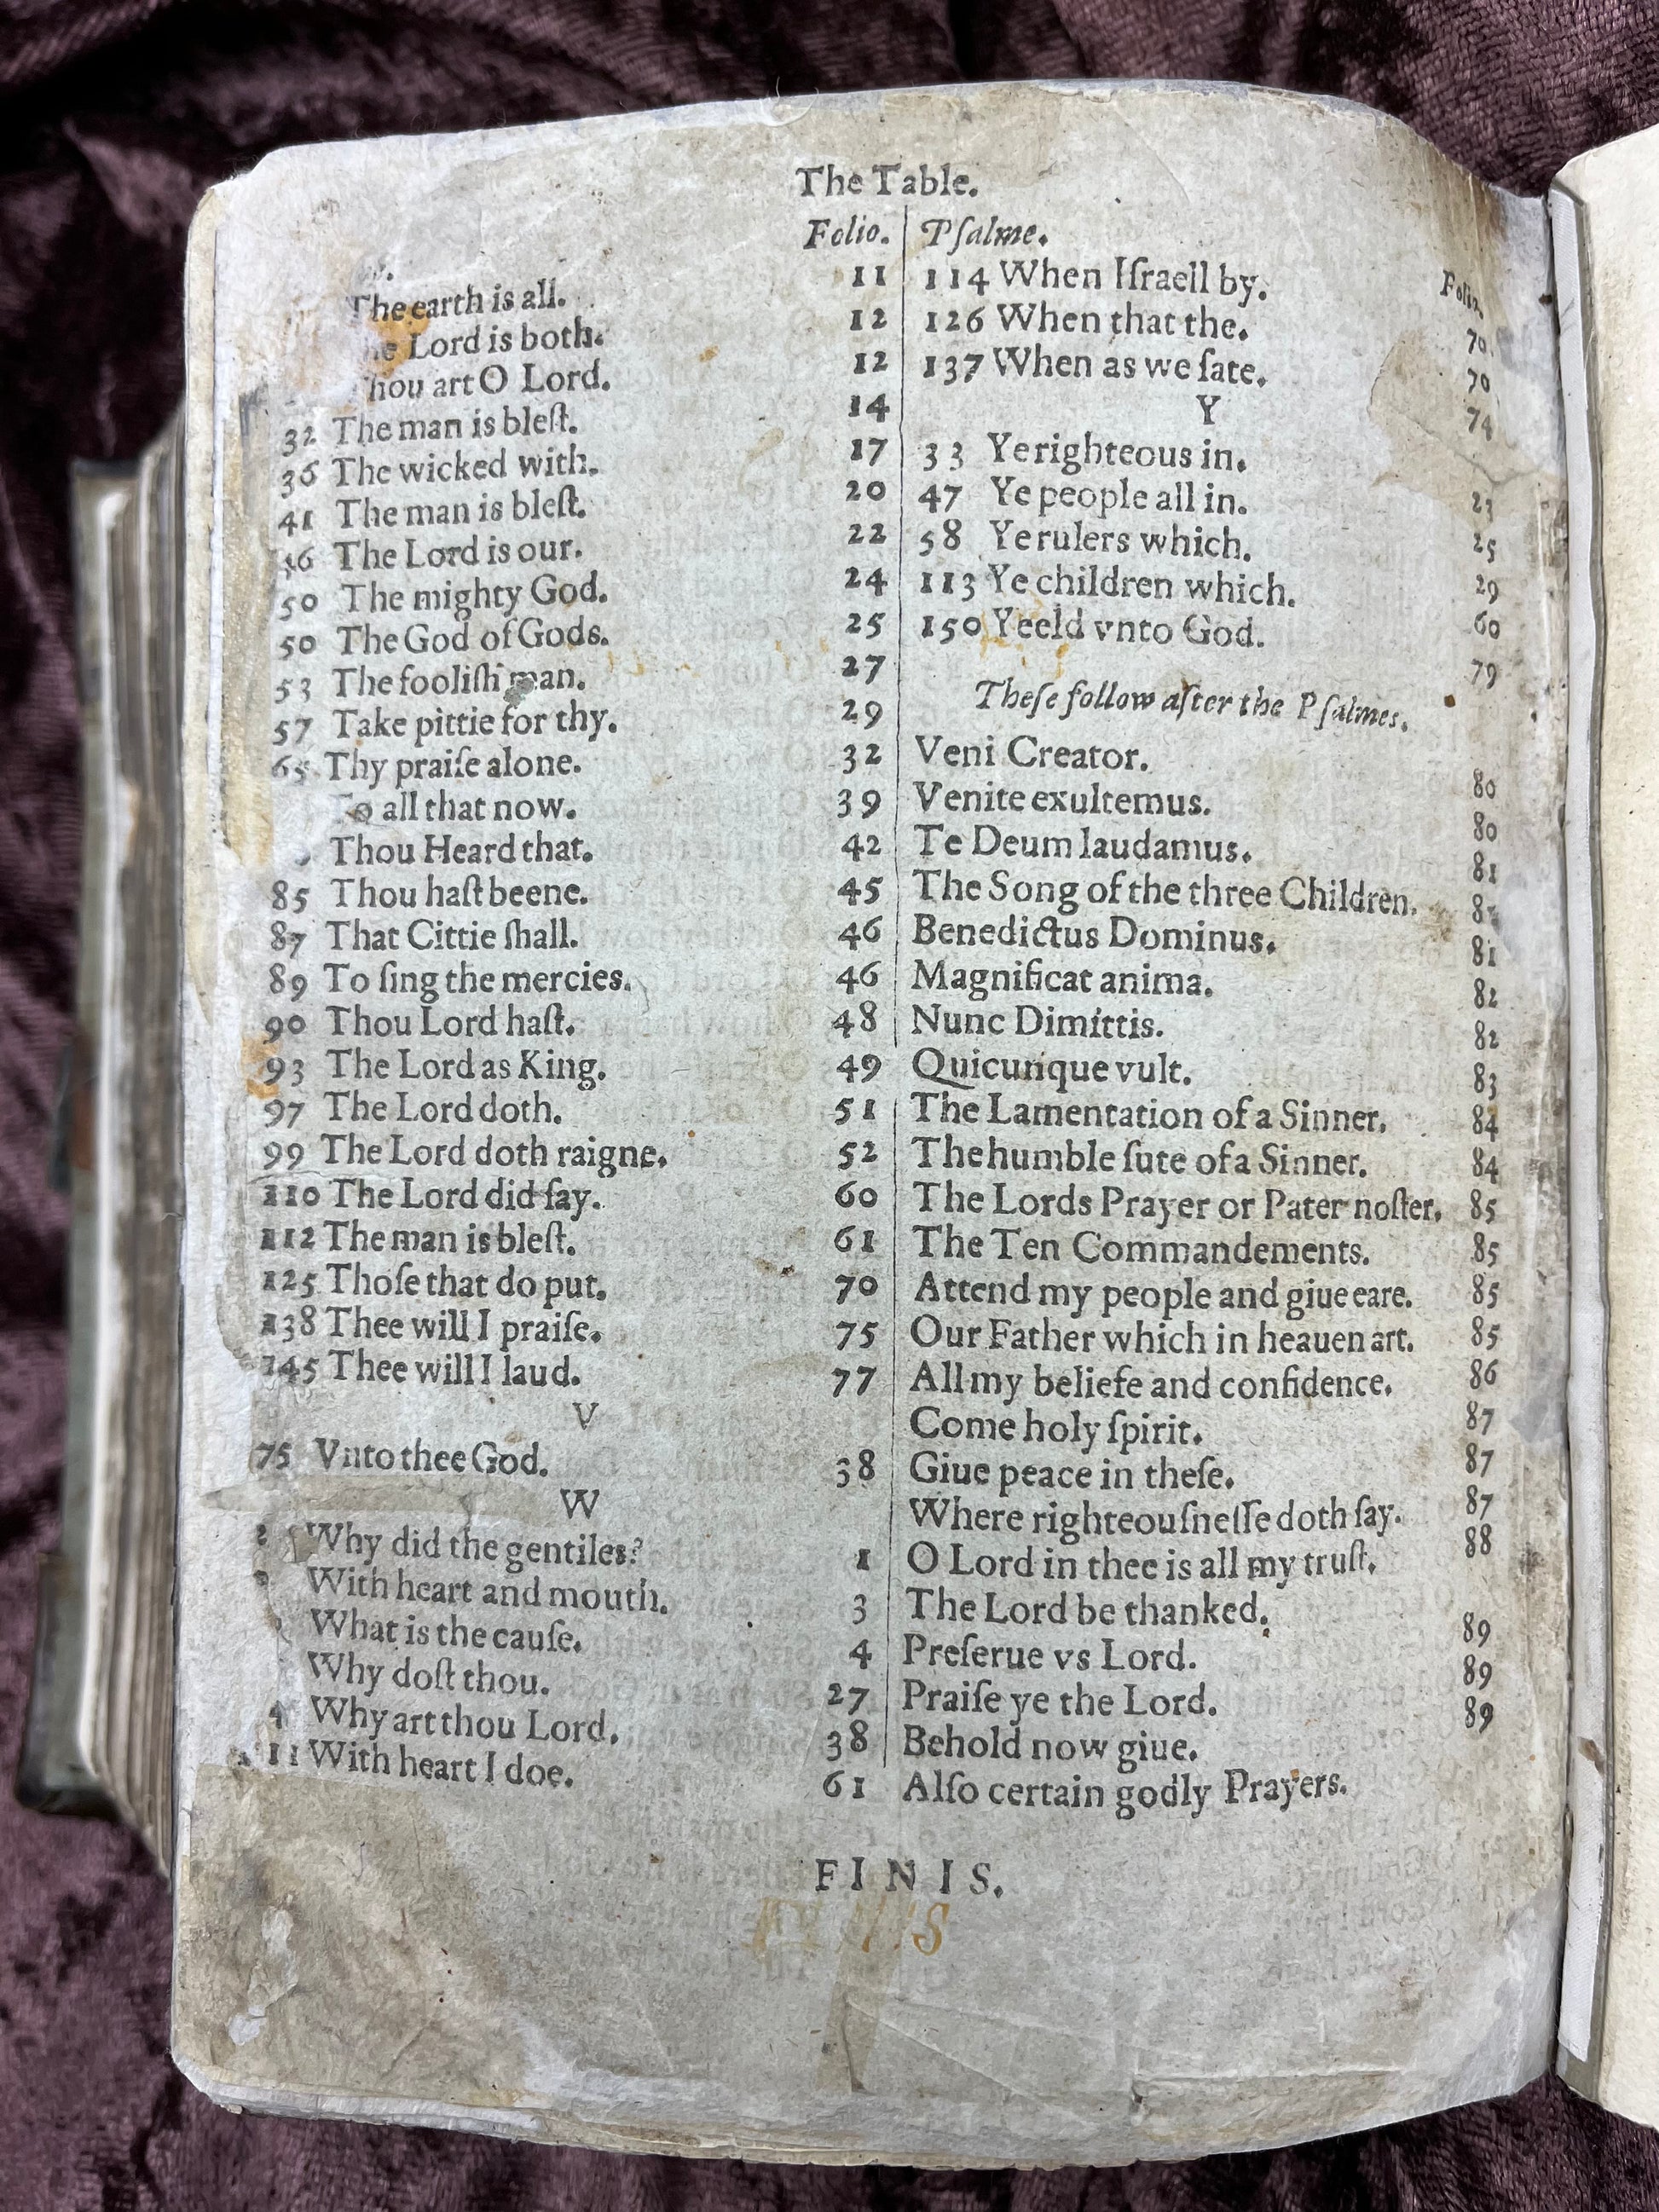 The Table.
Folio.
The earth is all. 11
Lord is both. 12
Thou art O Lord. 12
32 The man is blest. 14
36 The wicked with. 17
41 The man is blest. 20
46 The Lord is our. 22
50 The mighty God. 24
50 The God of Gods. 25
53 The foolish man. 27
57 Take pittie for thy. 29
65 Thy praise alone. 32
To all that now. 39
Thou Heard that. 42
85 Thou hast beene. 45
87 That Cittie shall. 46
89 To sing the mercies. 46
90 Thou Lord hast. 48
93 The Lord as King. 49
97 The Lord doth. 51
99 The Lord doth raigne. 52
110 The Lord did say. 60
112 The man is blest. 61
125 Those that do put. 70
138 Thee will I praise. 75
145 Thee will I laud. 77
V
75 Vnto thee God. 38
W
2 Why did the gentiles? 1
With heart and mouth. 3
What is the cause. 4
Why dost thou. 27
Why art thou Lord. 38
With heart I doe. 61
Psalme. Folio.
114 When Israell by. 70
126 When that the. 70
137 When as we sate. 74
Y
33 Ye righteous in. 23
47 Ye people all in. 25
58 Ye rulers which. 29
113 Ye children which. 60
150 Yeeld vnto God. 79
These follow after the Psalmes.
Veni Creator. 80
Venite exultemus. 80
Te Deum laudamus. 81
The Song of the three Children.
Benedictus Dominus. 81
Magnificat anima. 82
Nunc Dimittis. 82
Quicunque vult. 83
The Lamentation of a Sinner. 84
The humble sute of a Sinner. 84
The Lords Prayer or Pater noster. 85
The Ten Commandements. 85
Attend my people and giue eare. 85
Our Father which in heauen art. 85
All my beliefe and confidence. 86
Come holy spirit. 87
Giue peace in these. 87
Where righteousnesse doth say. 87
O Lord in thee is all my trust. 88
The Lord be thanked.
Preserue vs Lord. 89
Praise ye the Lord. 89
Behold now giue. 89
Also certain godly Prayers.
FINIS.